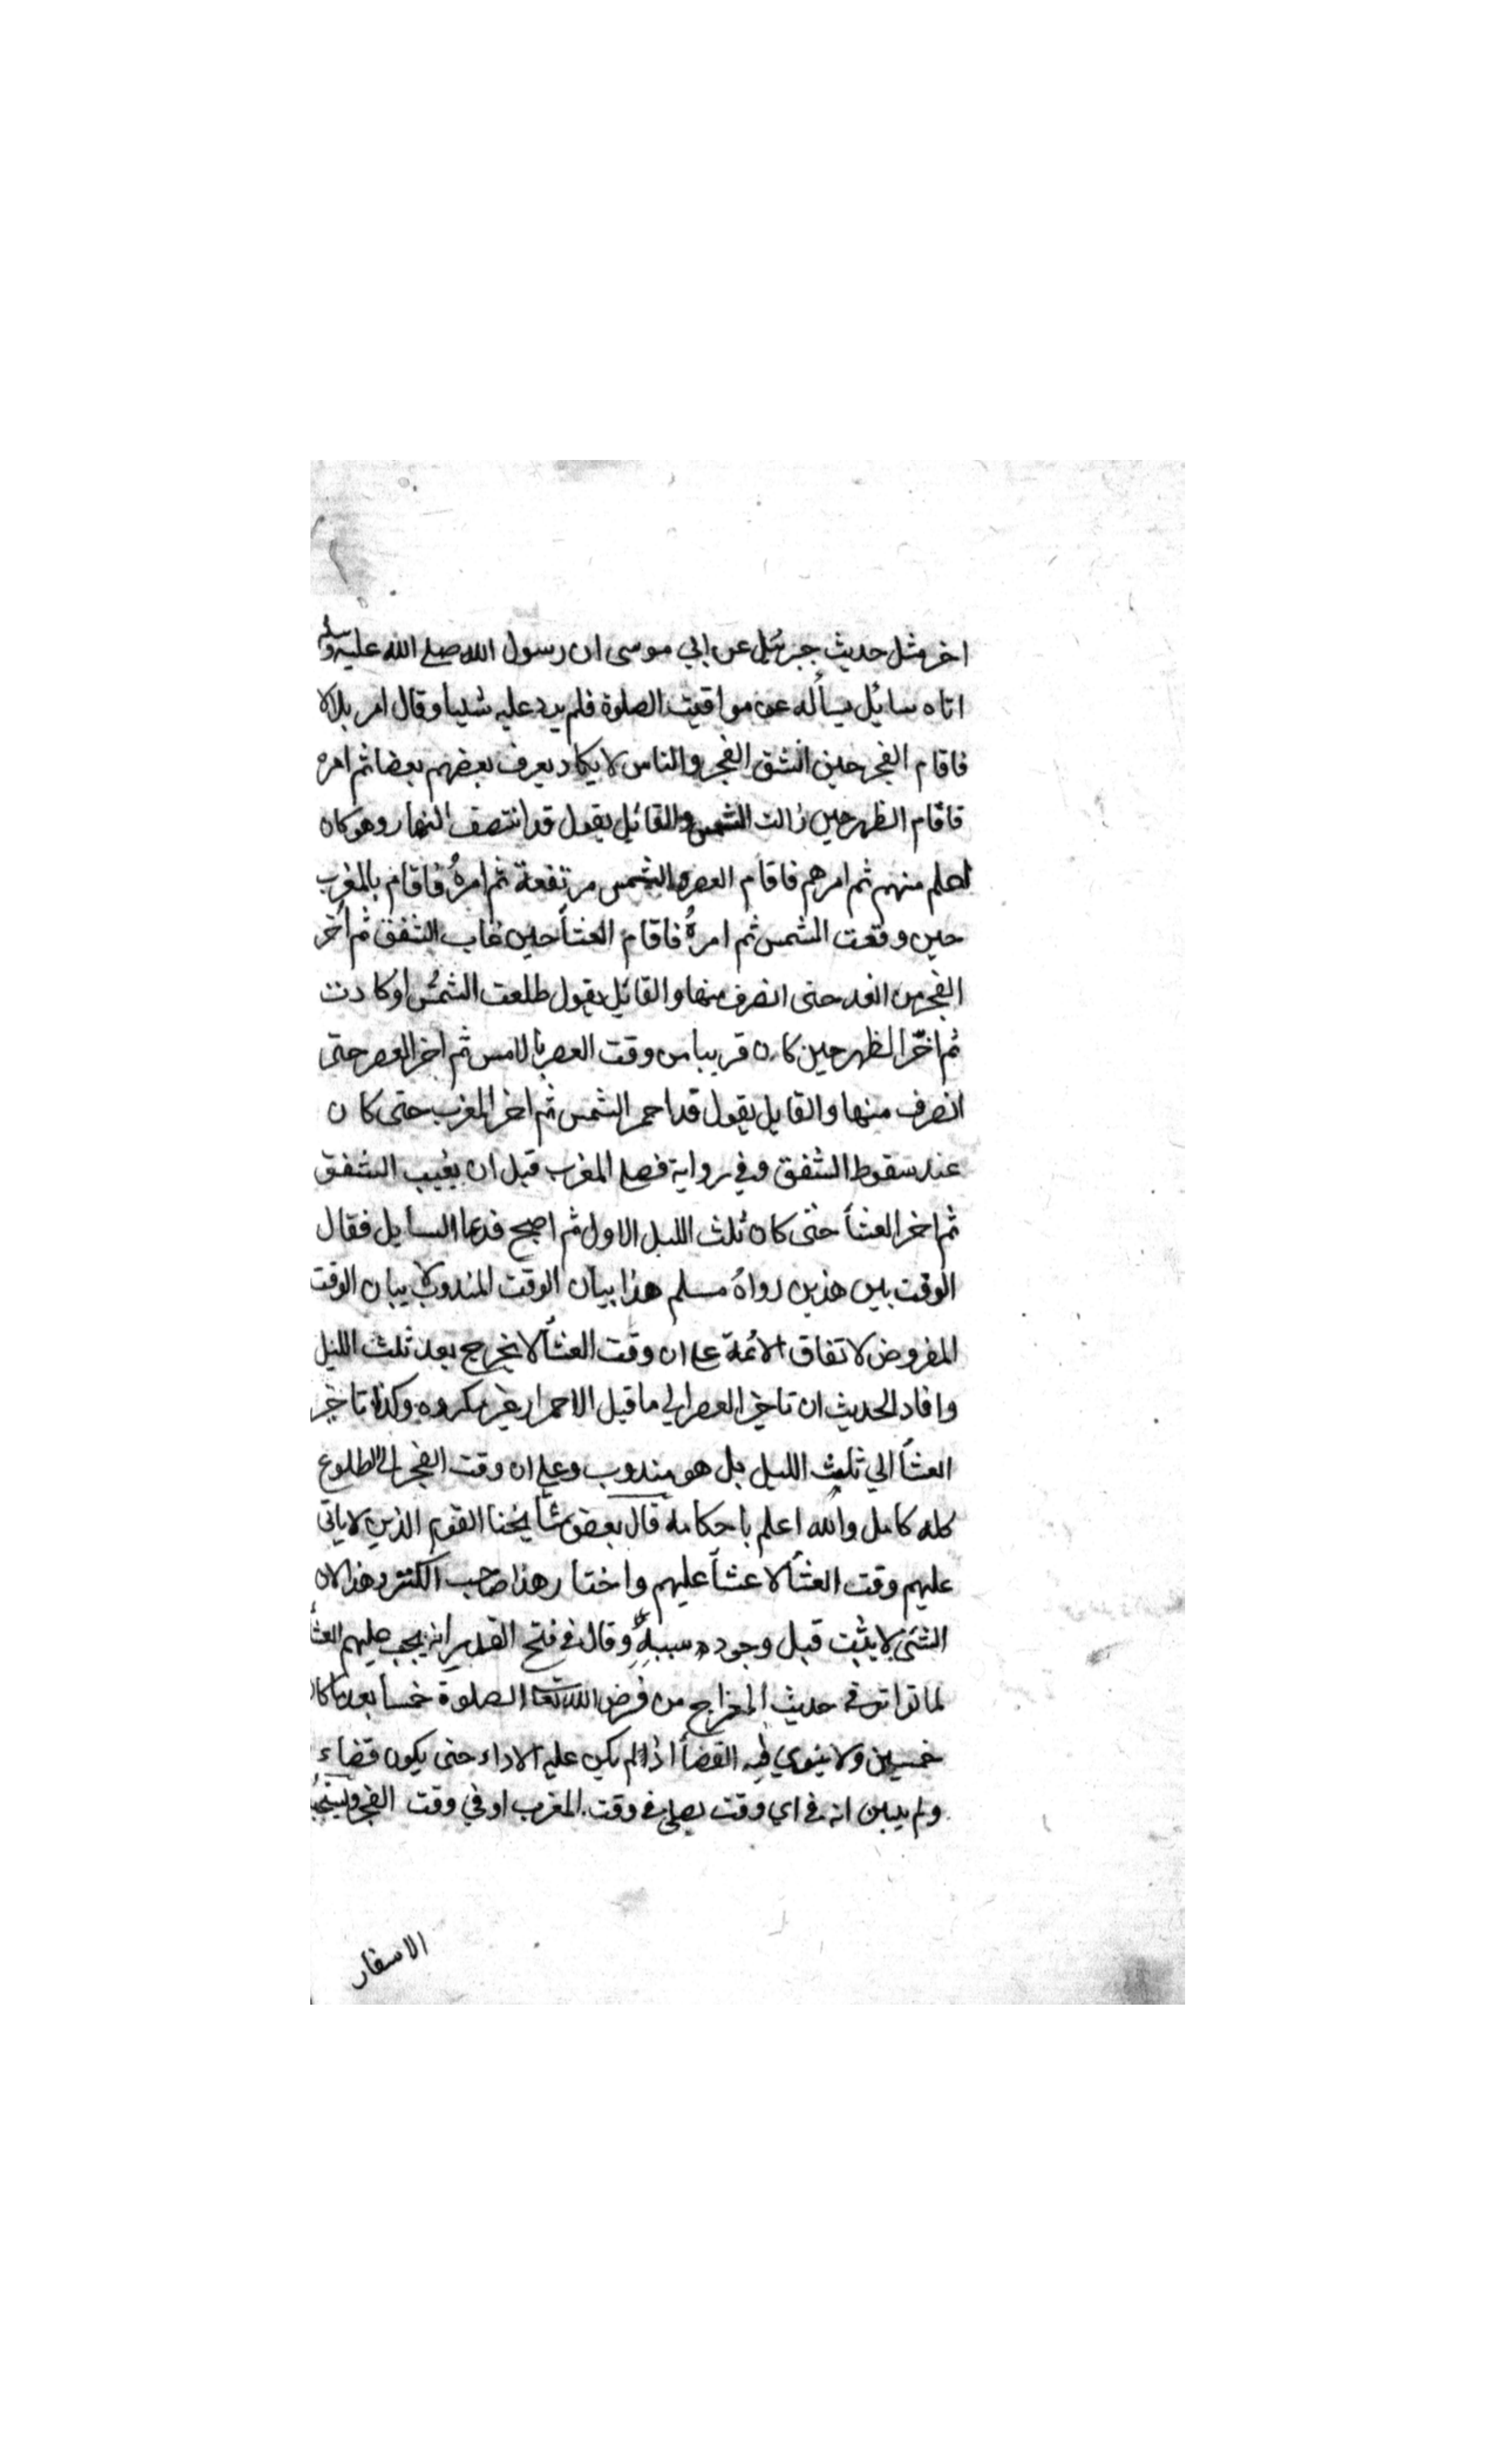 اخر مثل حديث جبرئيل عن ابي موسى ان رسول الله صلى الله عليه وسلم
اتاه سائيل يسأله عن مواقيت الصلوة فلم يرد عليه شيئا وقال امر بلالا
فاقام الفجر حين انشق الفجر والناس لا يكاد يعرف بعضهم بعضا ثم امره
فاقام الظهر حين زالت الشمس والقائيل يقول قد انتصف النهار وهو كان
اعلم منهم ثم امرهم فاقام العصر والشمس مرتفعة ثم امرهُ فاقام بالمغرب
حين وقعت الشمس ثم امرهُ فاقام العشأ حين غاب الشفق ثم أخر
الفجر من الغد حتى انصرف منها والقائيل يقول طلعت الشمس اوكادت
ثم اخّر الظهر حين كان قريبا من وقت العصر بالامس ثم اخر العصر حتى
انصرف منها والقايل يقول قد احمر الشمس ثم اخر المغرب حتى كان
عند سقوط الشفق وفي رواية فصلى المغرب قبل ان يغيب الشفق
ثم اخر العشأ حتى كان ثلث الليل الاول ثم اصبح فدعا السايل فقال
الوقت بين هذين رواهُ مسلم هذا بيان الوقت المندوب لا بيان الوقت
المفروض لاتفاق الائمة على ان وقت العشأ لا يخرج بعد ثلث الليل
وافاد الحديث ان تاخير العصر الي ما قبل الاحمرار غير مكروه وكذا تاخير
العشأ الي ثلث الليل بل هو مندوب وعلى ان وقت الفجر الى الطلوع
كله كامل والله اعلم باحكامه قال بعض مشايخنا القوم الذين لا ياتي
عليهم وقت العشأ لا عشأ عليهم واختار هذا صاحب الكنز وهذا لان
الشئ لا يثبت قبل وجود سببهِ وقال في فتح القدير انه يجب عليهم العشأ
لما تواتر في حديث المعراج من فرض الله تعا الصلوة خمسا بعد ما كان
خمسين ولا ينوي فيه القضأ اذا لم يكن عليه الاداء حتى يكون قضاء
ولم يبين انه في اي وقت يصلى في وقت المغرب او في وقت الفجر
الاسفار